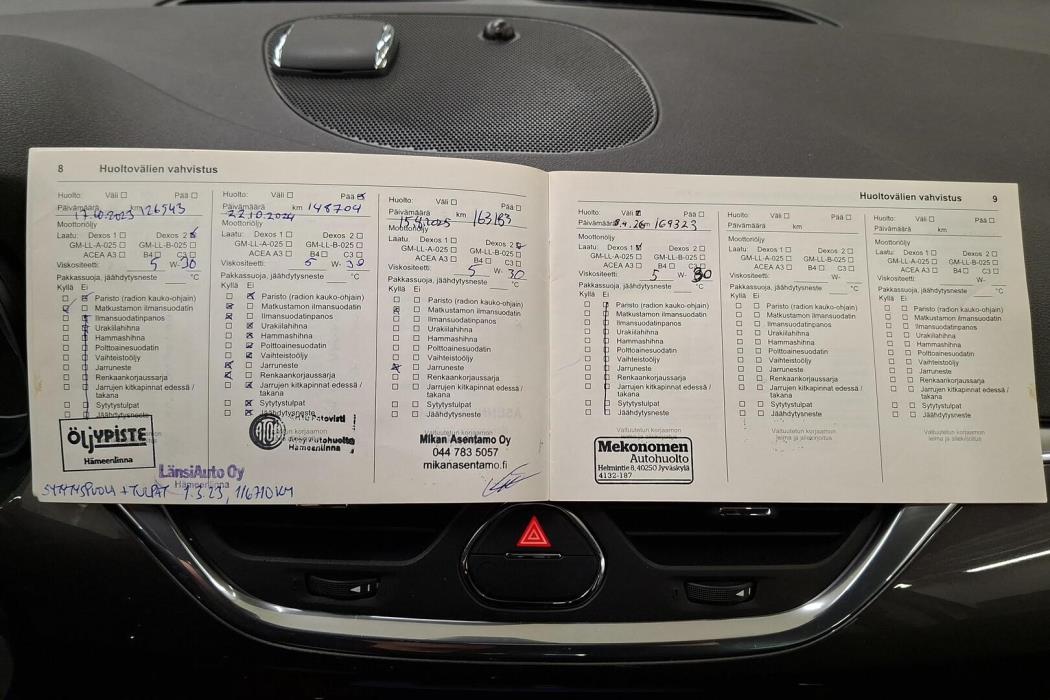 8 Huoltovälien vahvistus
Huolto: Väli ☐ Pää ☐
Päivämäärä 17.10.2023 km 126543
Moottoriöljy
Laatu: Dexos 1 ☐ Dexos 2 ☒
GM-LL-A-025 ☐ GM-LL-B-025 ☐
ACEA A3 ☐ B4 ☐ C3 ☐
Viskositeetti: 5 W- 30
Pakkassuoja, jäähdytysneste °C
Kyllä Ei
Paristo (radion kauko-ohjain)
Matkustamon ilmansuodatin
Ilmansuodatinpanos
Urakiilahihna
Hammashihna
Polttoainesuodatin
Vaihteistoöljy
Jarruneste
Renkaankorjaussarja
Jarrujen kitkapinnat edessä /
takana
Sytytystulpat
Jäähdytysneste
ÖLJYPISTE
Hämeenlinna
LänsiAuto Oy
Hämeenlinna
SYTYTYSPUOLA + TULPAT 7.3.23, 116710 KM
Huolto: Väli ☐ Pää ☒
Päivämäärä 22.10.2024 km 148704
Moottoriöljy
Laatu: Dexos 1 ☐ Dexos 2 ☐
GM-LL-A-025 ☐ GM-LL-B-025 ☐
ACEA A3 ☐ B4 ☐ C3 ☐
Viskositeetti: 5 W- 30
Pakkassuoja, jäähdytysneste °C
Kyllä Ei
Paristo (radion kauko-ohjain)
Matkustamon ilmansuodatin
Ilmansuodatinpanos
Urakiilahihna
Hammashihna
Polttoainesuodatin
Vaihteistoöljy
Jarruneste
Renkaankorjaussarja
Jarrujen kitkapinnat edessä /
takana
Sytytystulpat
Jäähdytysneste
Autohuolto
Hämeenlinna
Huolto: Väli ☐ Pää ☐
Päivämäärä 15.4.2025 km 163183
Moottoriöljy
Laatu: Dexos 1 ☐ Dexos 2 ☒
GM-LL-A-025 ☐ GM-LL-B-025 ☐
ACEA A3 ☐ B4 ☐ C3 ☐
Viskositeetti: 5 W- 30
Pakkassuoja, jäähdytysneste °C
Kyllä Ei
Paristo (radion kauko-ohjain)
Matkustamon ilmansuodatin
Ilmansuodatinpanos
Urakiilahihna
Hammashihna
Polttoainesuodatin
Vaihteistoöljy
Jarruneste
Renkaankorjaussarja
Jarrujen kitkapinnat edessä /
takana
Sytytystulpat
Jäähdytysneste
Valtuutetun korjaamon
Mikan Asentamo Oy
044 783 5057
mikanasentamo.fi
Huoltovälien vahvistus 9
Huolto: Väli ☒ Pää ☐
Päivämäärä 8.4.26 km 169323
Moottoriöljy
Laatu: Dexos 1 ☒ Dexos 2 ☐
GM-LL-A-025 ☐ GM-LL-B-025 ☐
ACEA A3 ☐ B4 ☐ C3 ☐
Viskositeetti: 5 W- 30
Pakkassuoja, jäähdytysneste °C
Kyllä Ei
Paristo (radion kauko-ohjain)
Matkustamon ilmansuodatin
Ilmansuodatinpanos
Urakiilahihna
Hammashihna
Polttoainesuodatin
Vaihteistoöljy
Jarruneste
Renkaankorjaussarja
Jarrujen kitkapinnat edessä /
takana
Sytytystulpat
Jäähdytysneste
Valtuutetun korjaamon
Mekonomen
Autohuolto
Helmintie 8, 40250 Jyväskylä
4132-187
Huolto: Väli ☐ Pää ☐
Päivämäärä km
Moottoriöljy
Laatu: Dexos 1 ☐ Dexos 2 ☐
GM-LL-A-025 ☐ GM-LL-B-025 ☐
ACEA A3 ☐ B4 ☐ C3 ☐
Viskositeetti: W-
Pakkassuoja, jäähdytysneste °C
Kyllä Ei
Paristo (radion kauko-ohjain)
Matkustamon ilmansuodatin
Ilmansuodatinpanos
Urakiilahihna
Hammashihna
Polttoainesuodatin
Vaihteistoöljy
Jarruneste
Renkaankorjaussarja
Jarrujen kitkapinnat edessä /
takana
Sytytystulpat
Jäähdytysneste
Valtuutetun korjaamon
leima ja allekirjoitus
Huolto: Väli ☐ Pää ☐
Päivämäärä km
Moottoriöljy
Laatu: Dexos 1 ☐ Dexos 2 ☐
GM-LL-A-025 ☐ GM-LL-B-025 ☐
ACEA A3 ☐ B4 ☐ C3 ☐
Viskositeetti: W-
Pakkassuoja, jäähdytysneste °C
Kyllä Ei
Paristo (radion kauko-ohjain)
Matkustamon ilmansuodatin
Ilmansuodatinpanos
Urakiilahihna
Hammashihna
Polttoainesuodatin
Vaihteistoöljy
Jarruneste
Renkaankorjaussarja
Jarrujen kitkapinnat edessä /
takana
Sytytystulpat
Jäähdytysneste
Valtuutetun korjaamon
leima ja allekirjoitus